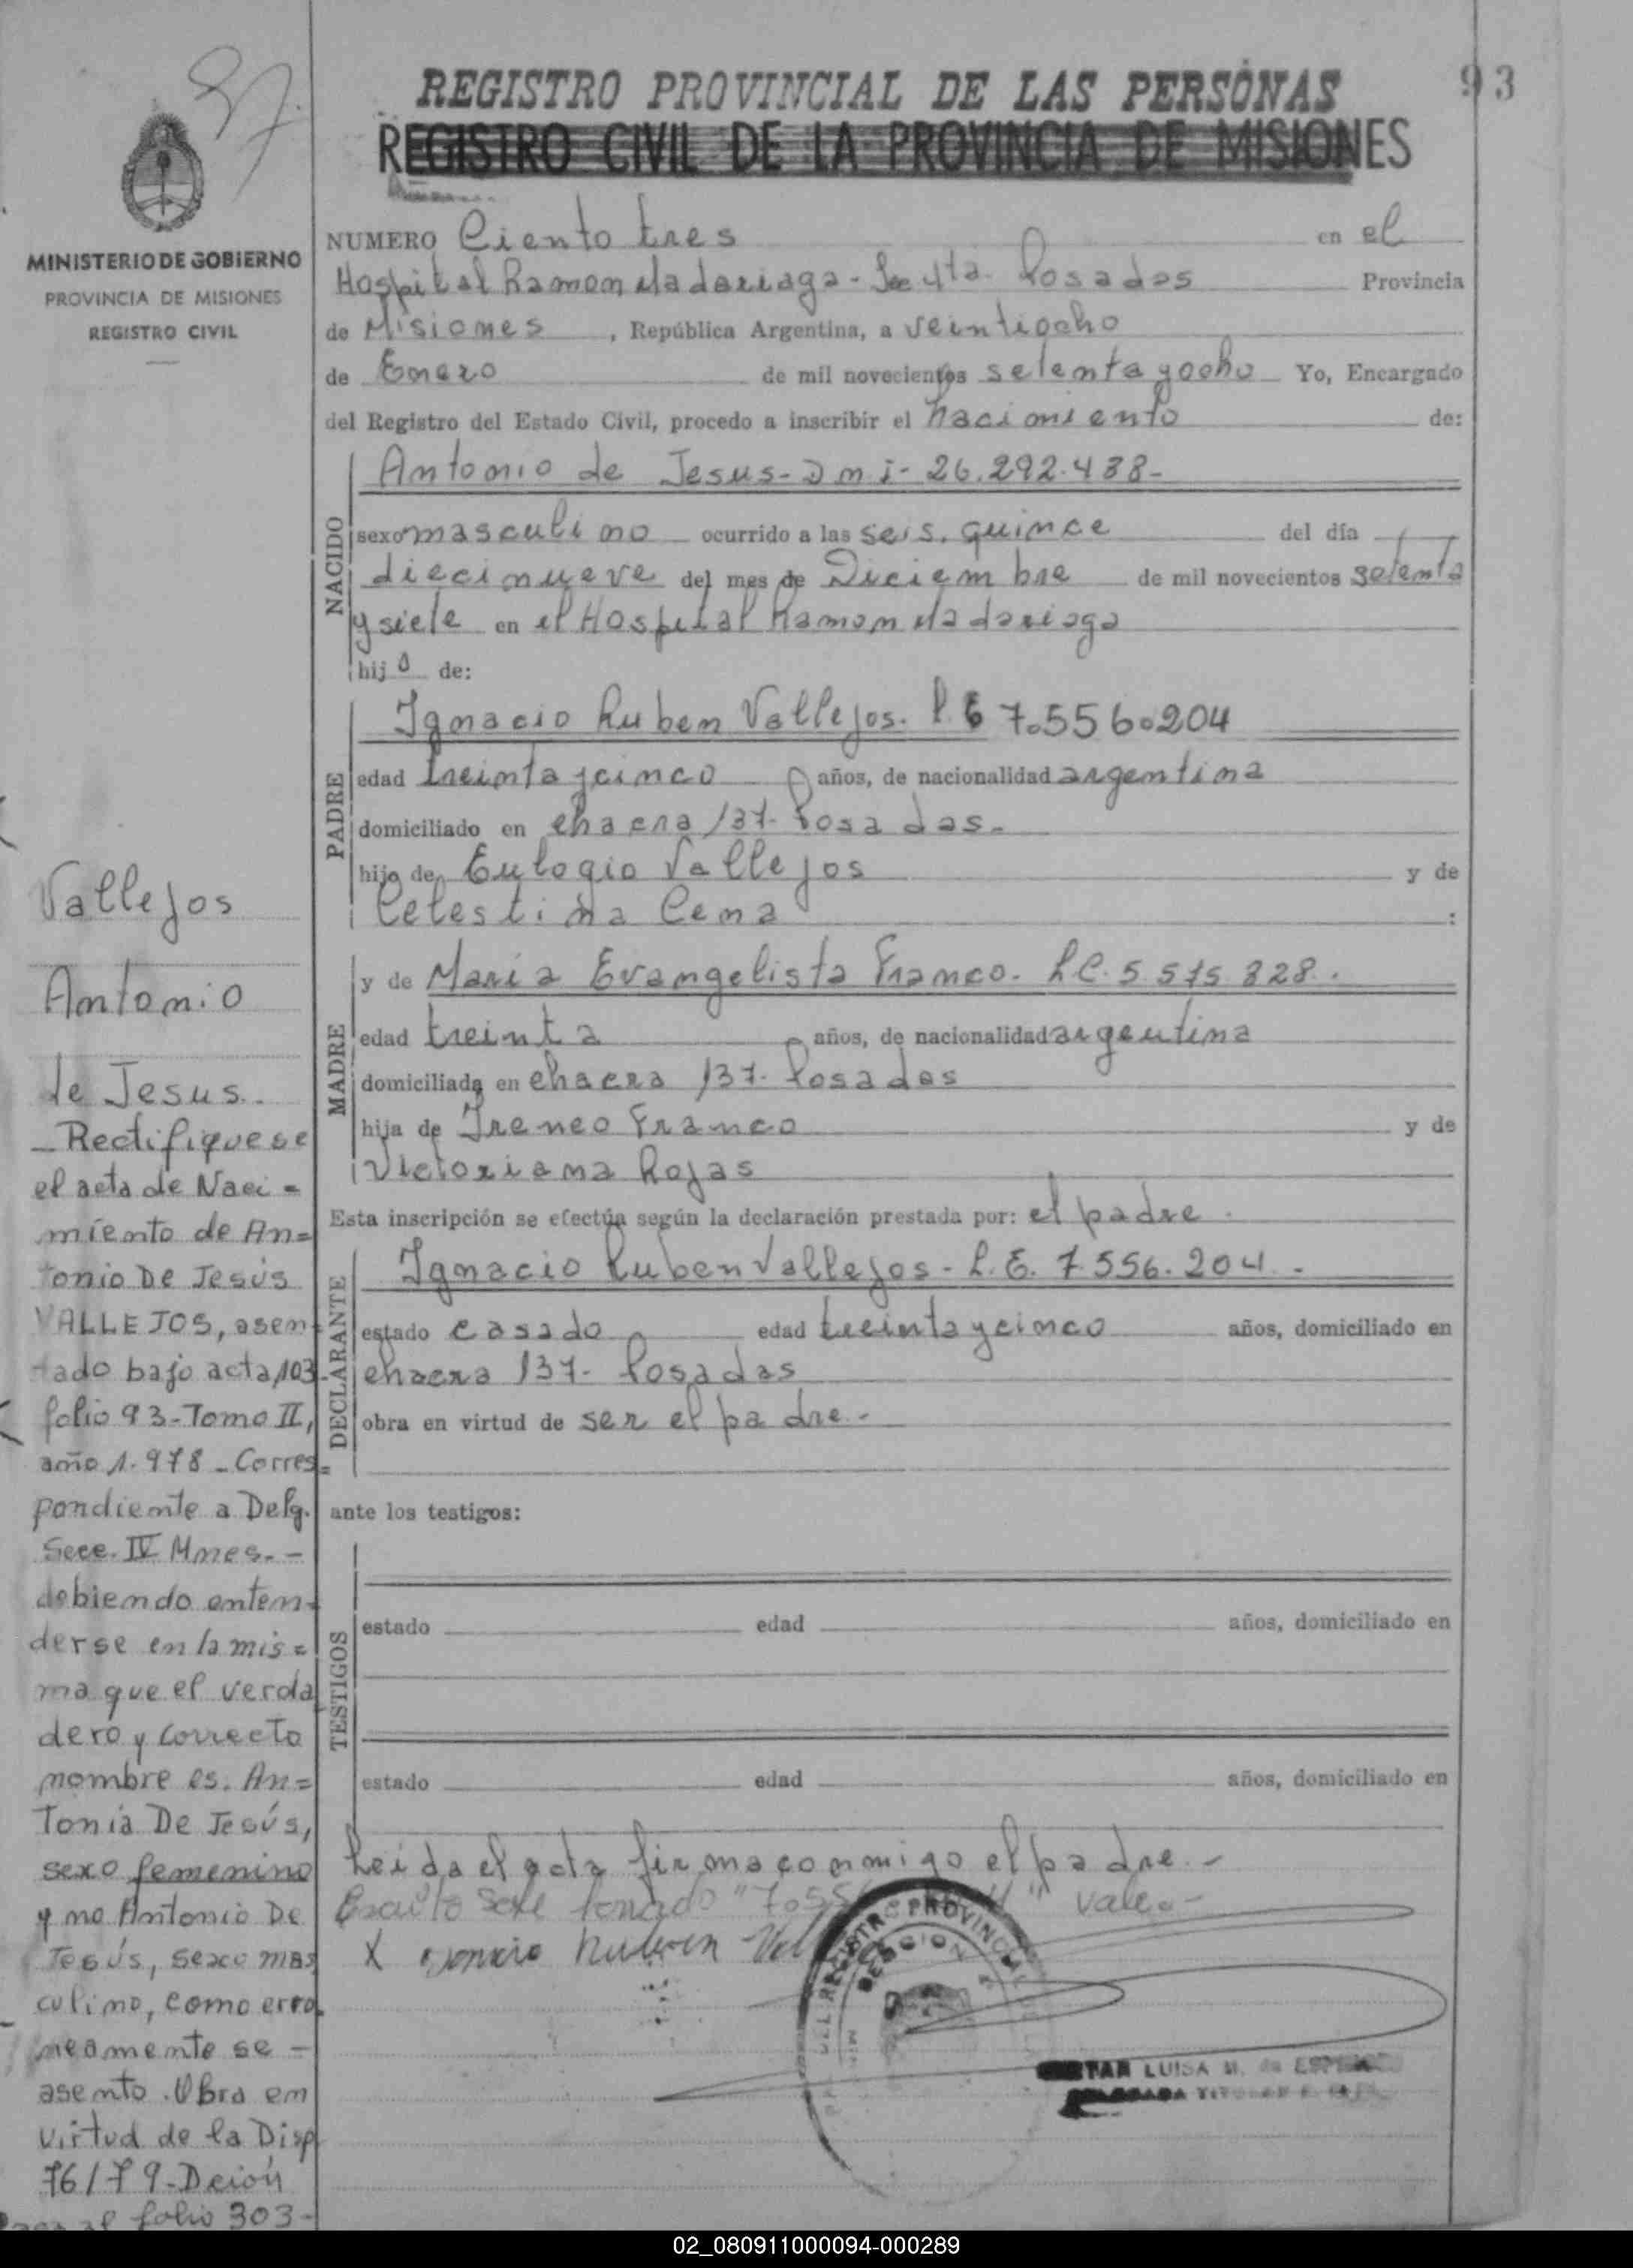 97.
93
REGISTRO PROVINCIAL DE LAS PERSONAS
REGISTRO CIVIL DE LA PROVINCIA DE MISIONES
MINISTERIO DE GOBIERNO
PROVINCIA DE MISIONES
REGISTRO CIVIL
NUMERO Ciento tres en el
Hospital Ramon Madariaga - Sec 4ta. Posadas Provincia
de Misiones, República Argentina, a veintiocho
de Enero de mil novecientos setenta y ocho Yo, Encargado
del Registro del Estado Civil, procedo a inscribir el nacimiento de:
NACIDO
Antonio de Jesus - D n i - 26.292.438-
sexo masculino ocurrido a las seis, quince del día
diecinueve del mes de Diciembre de mil novecientos setenta
y siete en el Hospital Ramon Madariaga
hijo de:
PADRE
Ignacio Ruben Vallejos. L E 7.556.204
edad treinta y cinco años, de nacionalidad argentina
domiciliado en chacra 137- Posadas.-
hijo de Eulogio Vallejos y de
Celestina Cena :
MADRE
y de Maria Evangelista Franco- L.C. 5.575.828.
edad treinta años, de nacionalidad argentina
domiciliada en chacra 137- Posadas
hija de Ireneo Franco y de
Victoriana Rojas
Esta inscripción se efectúa según la declaración prestada por: el padre.
DECLARANTE
Ignacio Ruben Vallejos - L.E. 7.556.204.-
estado casado edad treinta y cinco años, domiciliado en
chacra 137- Posadas
obra en virtud de ser el padre.-
ante los testigos:
TESTIGOS
estado edad años, domiciliado en
estado edad años, domiciliado en
Leida el acta firma conmigo el padre.-
"7.55 " vale.-
X Ignacio Ruben
REGISTRO PROVINCIAL
LUISA M. de
Vallejos
Antonio
de Jesus.
_ Rectifiquese
el acta de Naci=
miento de An=
tonio De Jesús
VALLEJOS, asen=
tado bajo acta 103-
folio 93-Tomo II,
año 1.978 - Corres=
pondiente a Delg.
Secc. IV Mnes.-
debiendo enten=
derse en la mis=
ma que el verda
dero y correcto
nombre es. An=
tonia De Jesús,
sexo femenino
y no Antonio De
Jesús, sexo mas
culino, como erro
neamente se -
asento. Obra en
virtud de la Disp
76/79-Dción
al folio 303-
02_080911000094-000289